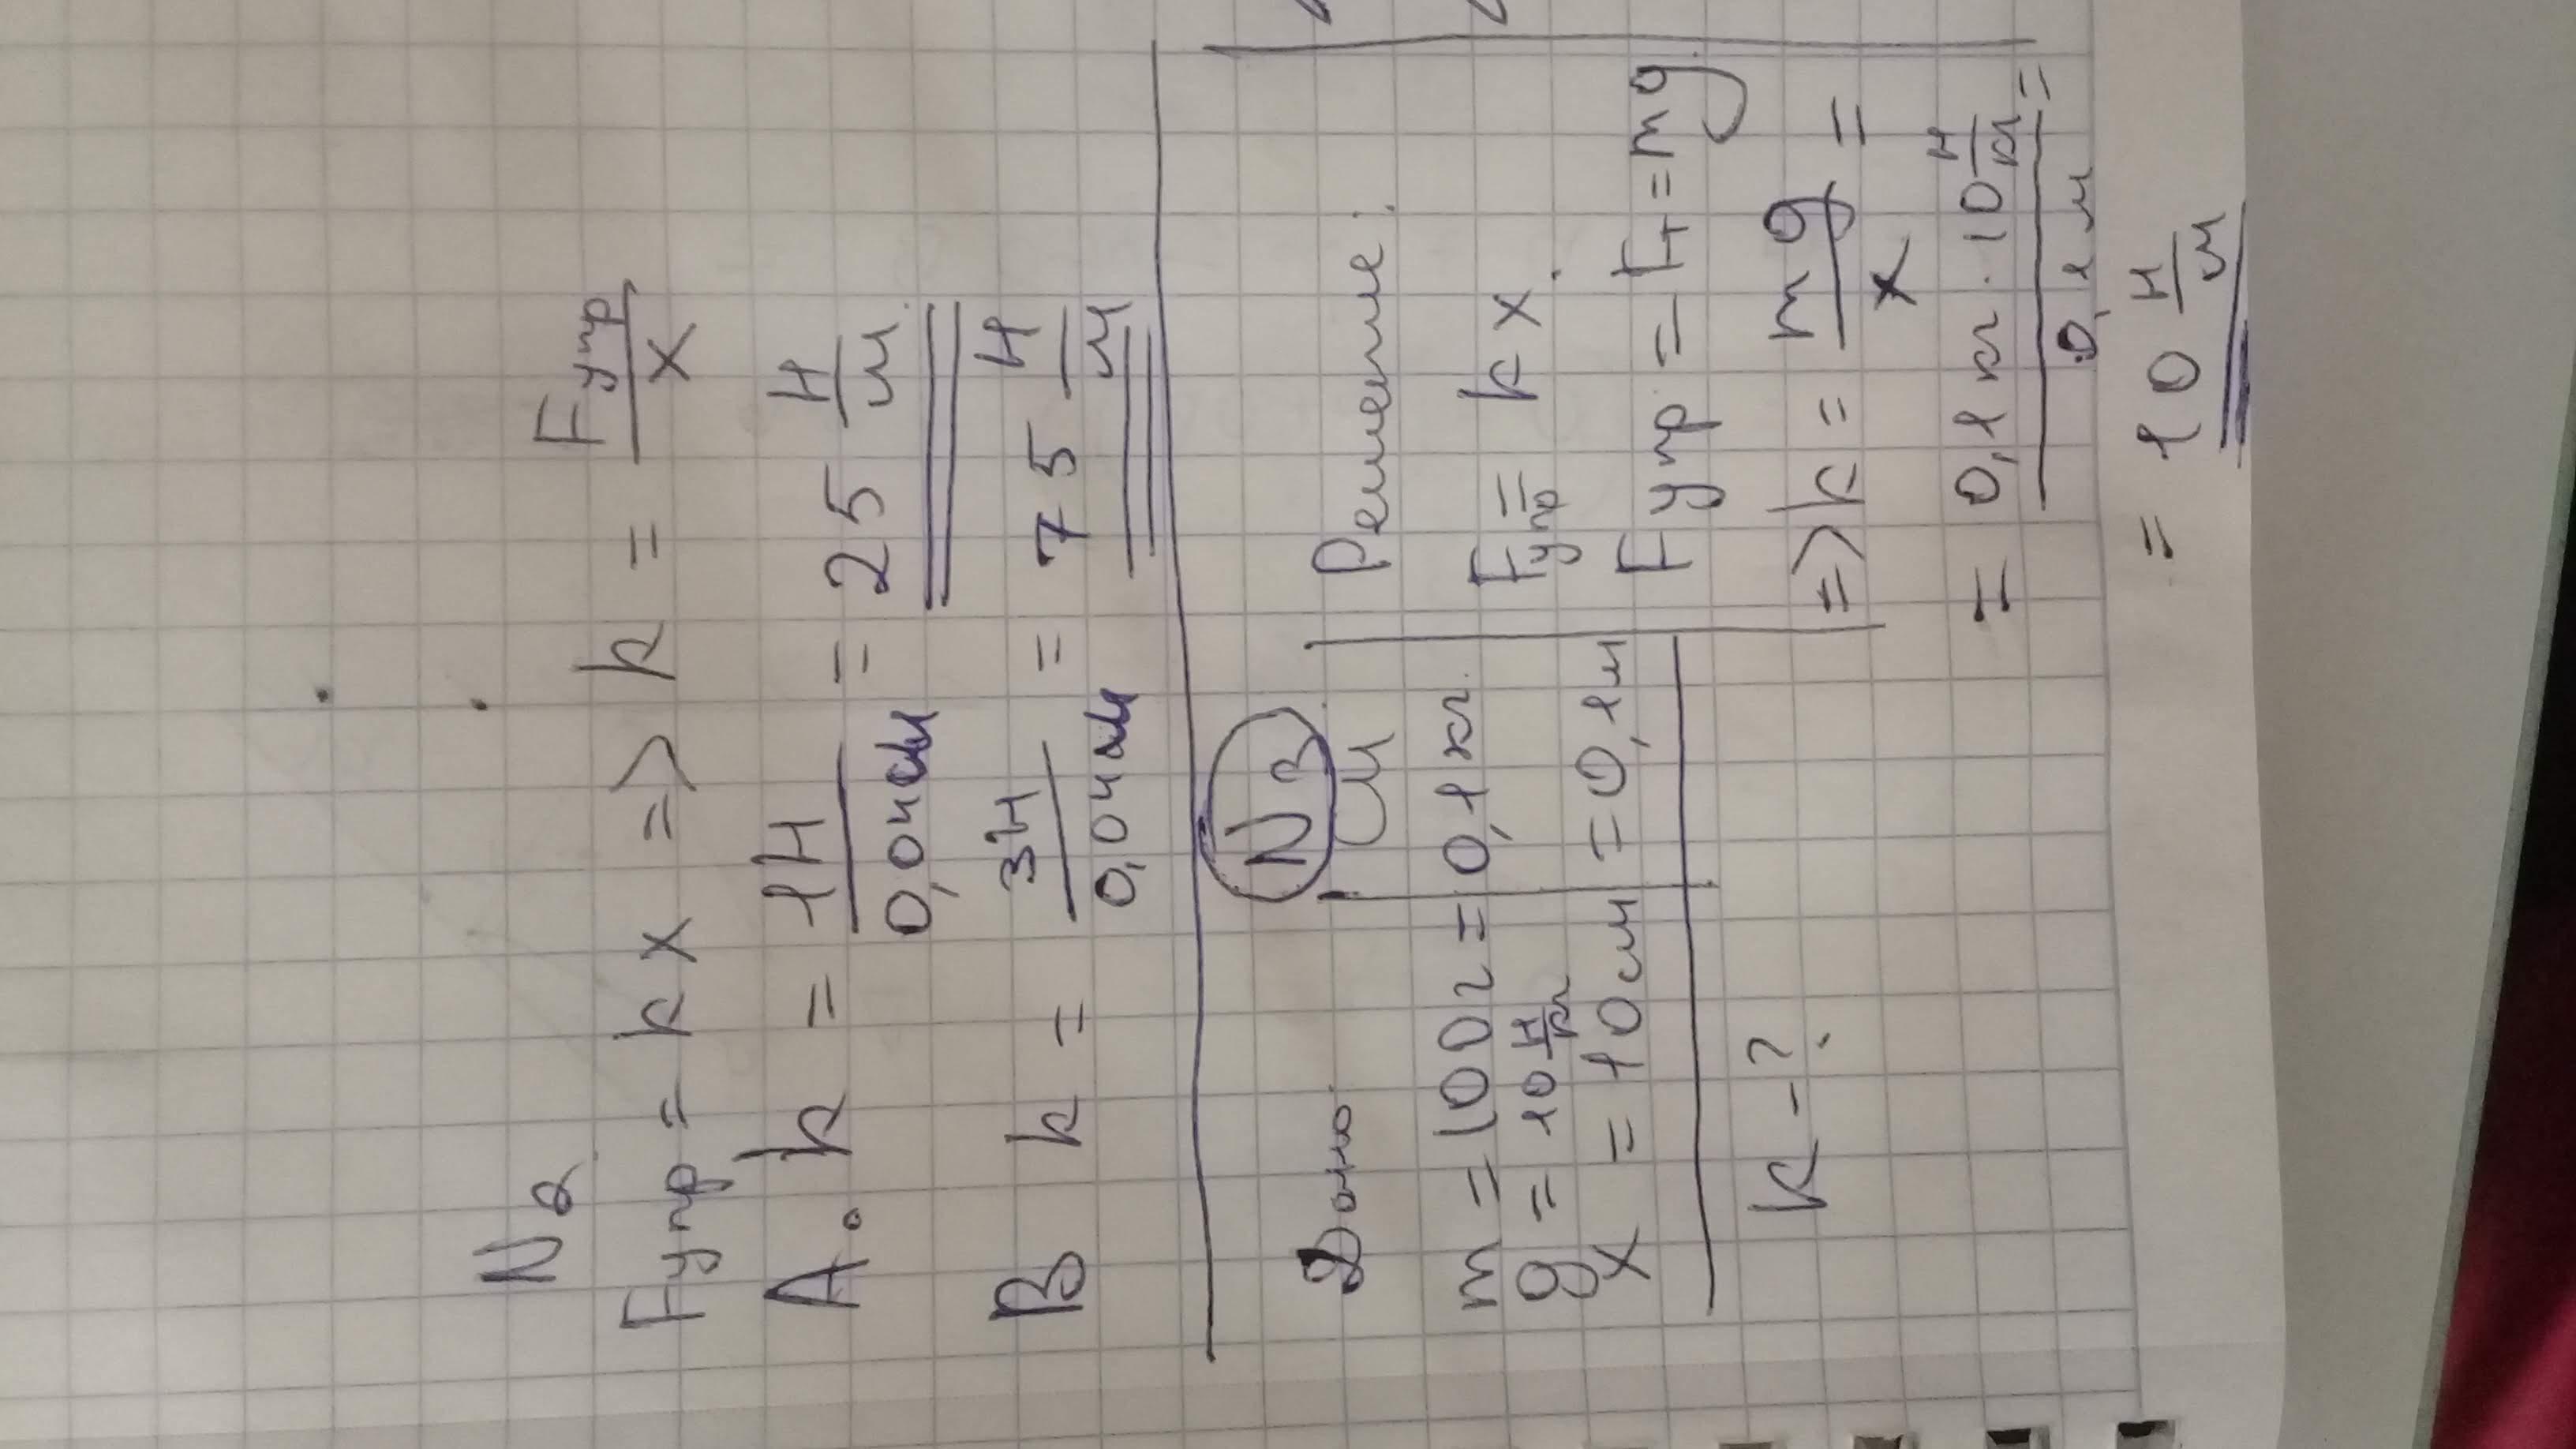 N2
Fупр = kx => k = Fупр/x
A. k = 1Н/0,04м = 25 Н/м
B k = 3Н/0,04м = 75 Н/м
N3
Дано СИ Решение:
m = 100г = 0,1кг. Fупр = kx.
g = 10 Н/кг
x = 10см = 0,1м Fупр = Fт = mg
k - ? => k = mg/x =
= 0,1 кг · 10 Н/кг / 0,1 м =
= 10 Н/м